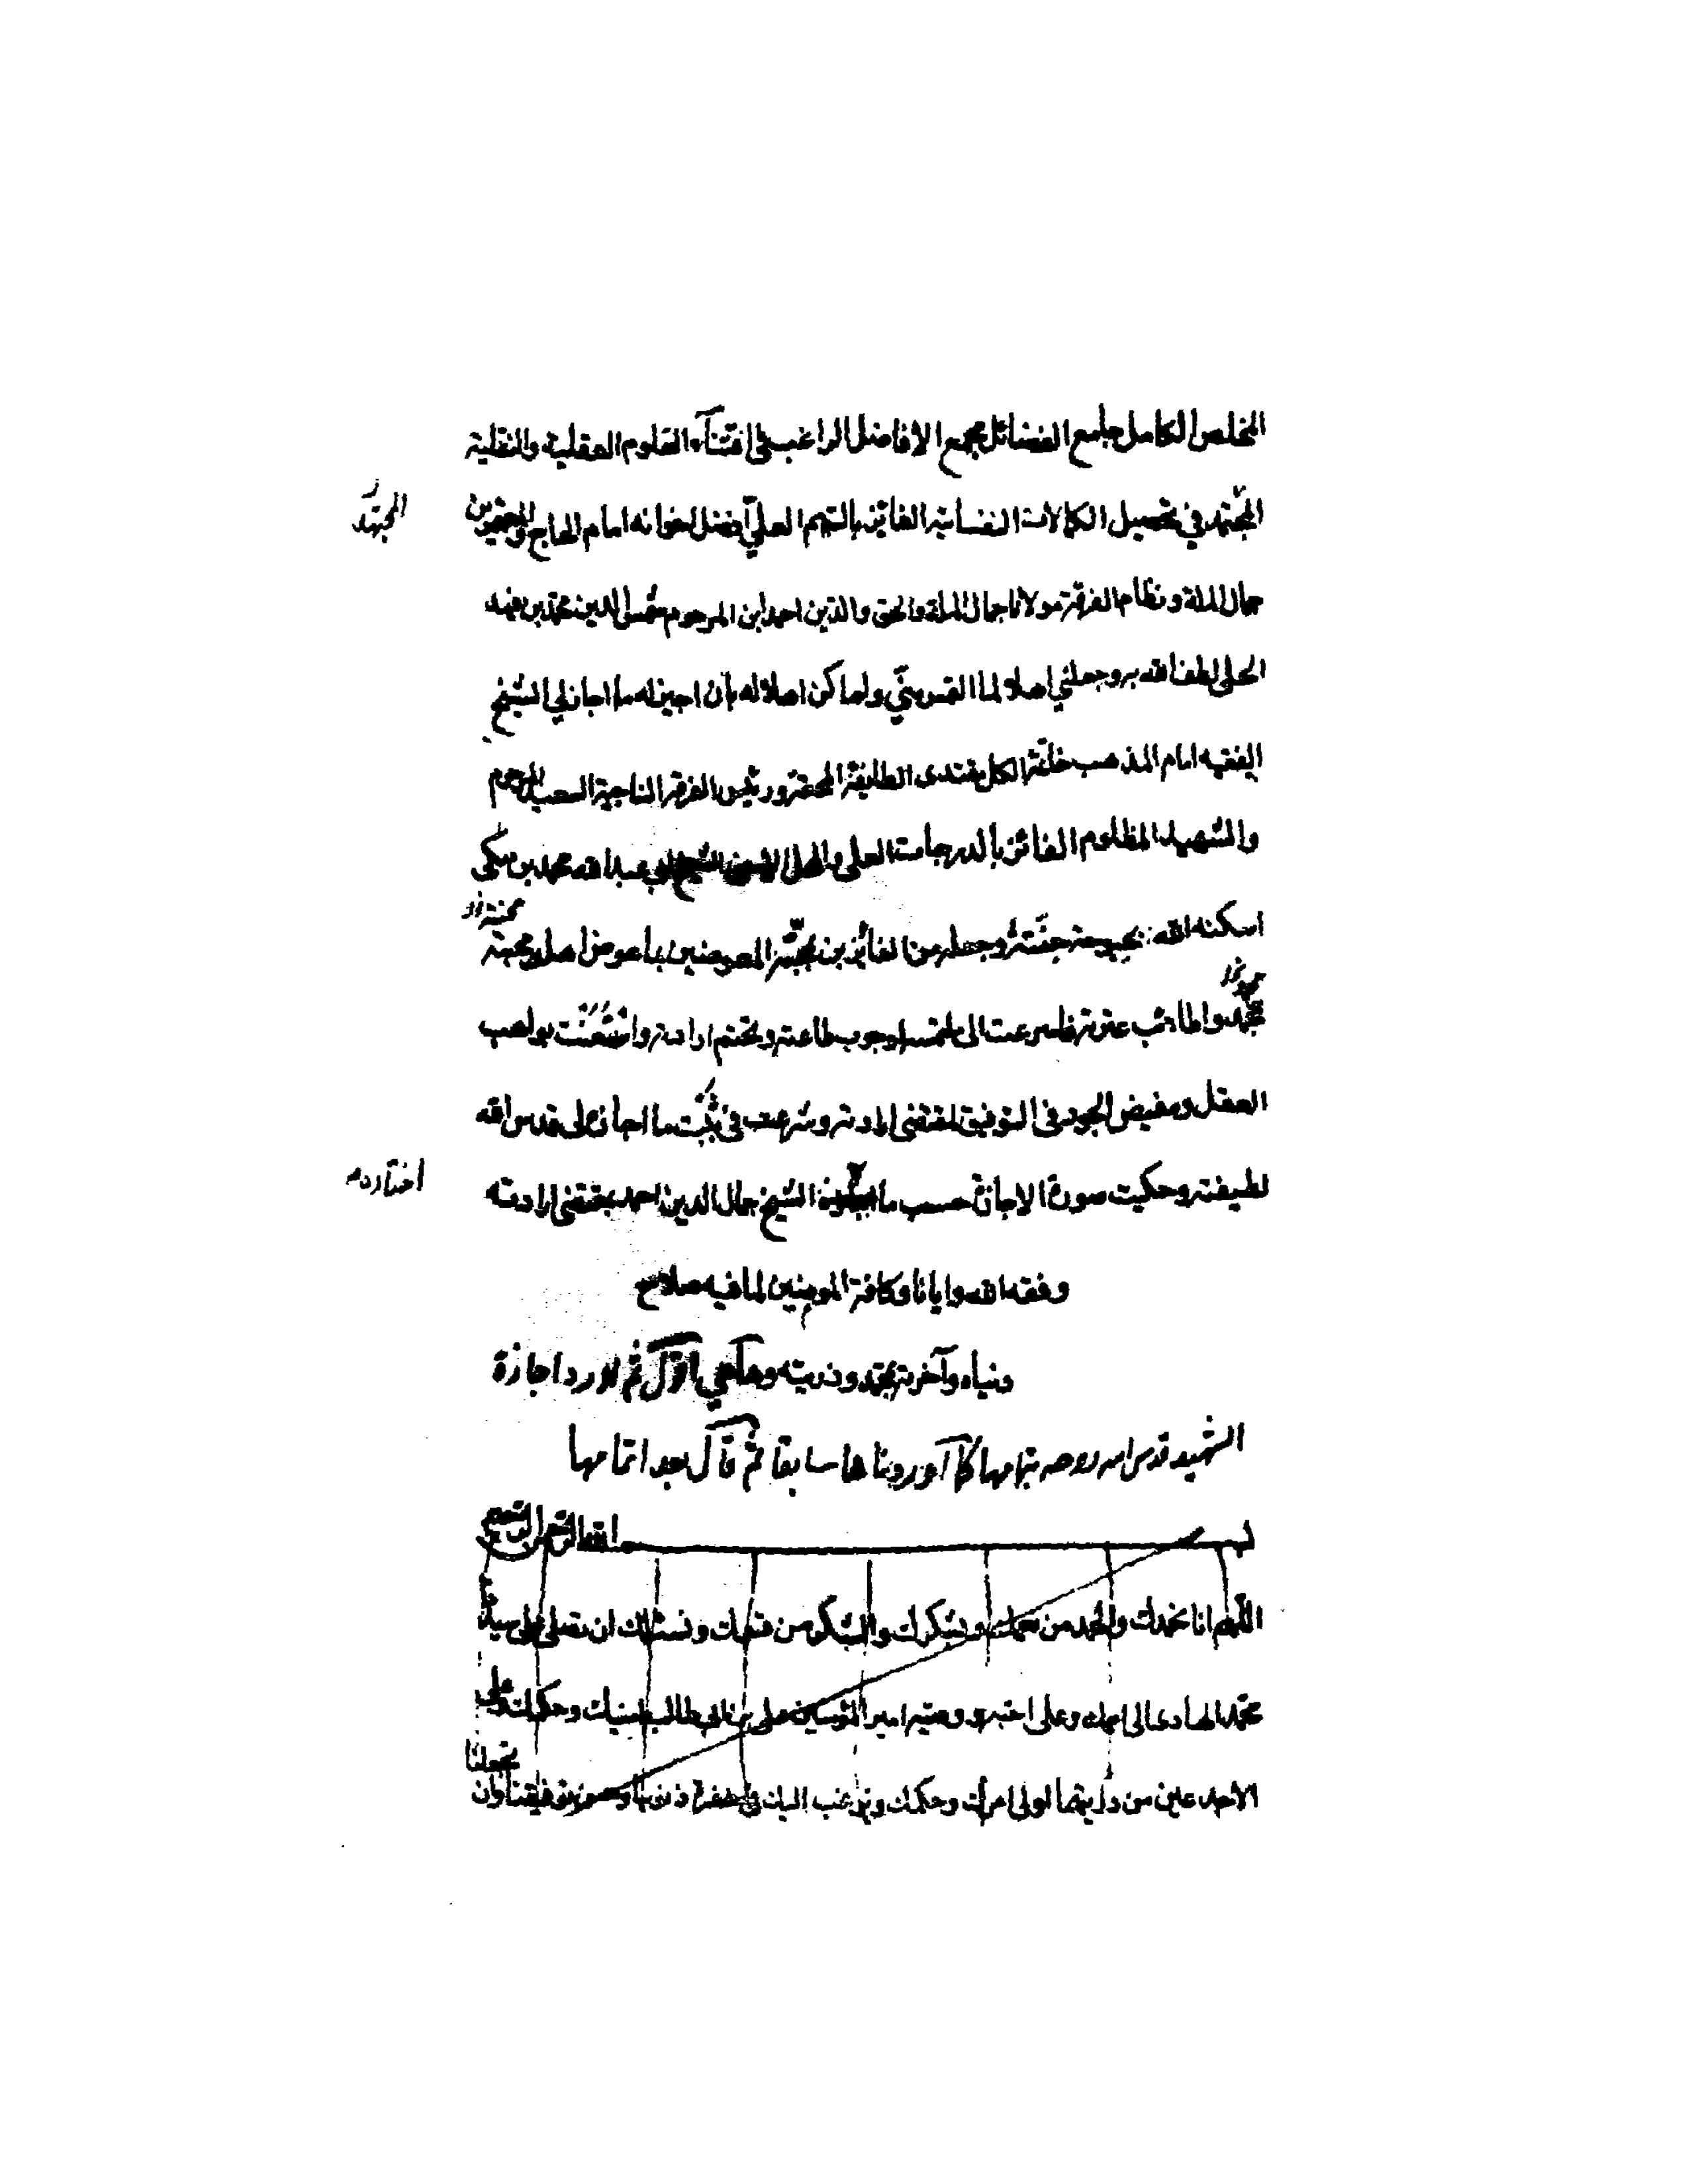 المخلص الكامل جامع الفضائل مجمع الافاضل الراغب في اقتناء العلوم العقلية والنقلية
المجتهد في تحصيل الكمالات النفسانية الفائز بالسهم العلي افضل اخوانه امام الحاج والمعتمرين
المجتهد
جمال الملة ونظام الفرقة مولانا جمال الملة والحق والدين احمد ابن المرحوم شمس الدين محمد بن فهد
الحلي لطف الله به وجعلني اهلا لما التمس مني ولم اكن اهلا له بان اجيز له ما اجاز لي الشيخ
الفقيه امام المذهب خاتمة الكل مقتدى الطايفة المحقة ورئيس الفرقة الناجية السعيد المرحوم
والشهيد المظلوم الفائز بالدرجات العلى والمحل الاسنى الشيخ ابي عبد الله محمد بن مكي
اسكنه الله بحبوحة جنته وجعله من الفائزين بمحبته المعوضين باعواض اهل محبته
محنته
بمحمد واطائب عترته فاسرعت الى ملتمسه لوجوب طاعته وتحتم ارادته واستعنت بواهب
العقل ومفيض الجود في التوفيق لمقتضى ارادته وشرعت في ثبت ما اجازه لي قدس الله
لطيفته وحكيت صورة الاجازة حسب ما الشيخ جمال الدين احمد بمقتضى ارادته
اختاره
وفقه الله وايانا وكافة المومنين لما فيه صلاح
دنياه وآخرته بمحمد وذريته وها هي اقول ثم اورد اجازة
الشهيد قدس الله روحه بتمامها كما اوردناها سابقا ثم قال بعد اتمامها
بسم الله الرحمن الرحيم
اللهم انا نحمدك والحمد من نعمك ونشكرك والشكر من قسمك ونسئلك ان تصلي على سيدنا
محمد الهادي الى امرك وعلى اخيه ووصيه امير المؤمنين علي بن ابي طالب امينك وحكمك وعلى
الائمة من ذريتهما اولي امرك وحكمك ونرغب اليك في مغفرة ذنوبنا وحسن توفيقنا وان
تجعلنا